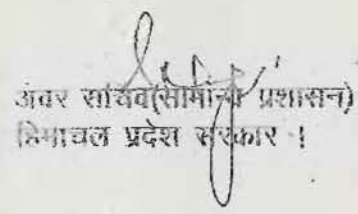 अवर सचिव(सामान्य प्रशासन)
हिमाचल प्रदेश सरकार ।